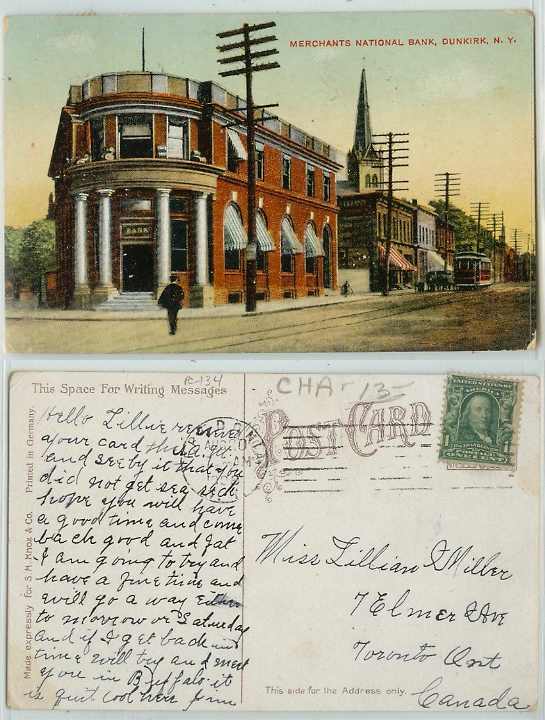 MERCHANTS NATIONAL BANK, DUNKIRK, N. Y.
BANK
PC-134
This Space For Writing Messages
CHA-13-
POST CARD
UNITED STATES
Made expressly for S. H. Knox & Co. Printed in Germany.
Hello Lillie received
your card this
and see by it that you
did not get sea sick
hope you will have
a good time and come
back good and fat
I am going to try and
have a fine time and
will go a way Either
to morrow or Saturday
and if I get back in
time will try and meet
you in Buffalo it
is quit cool here
Miss Lillian Miller
7 Elmer Ave
Toronto Ont
Canada
This side for the Address only.